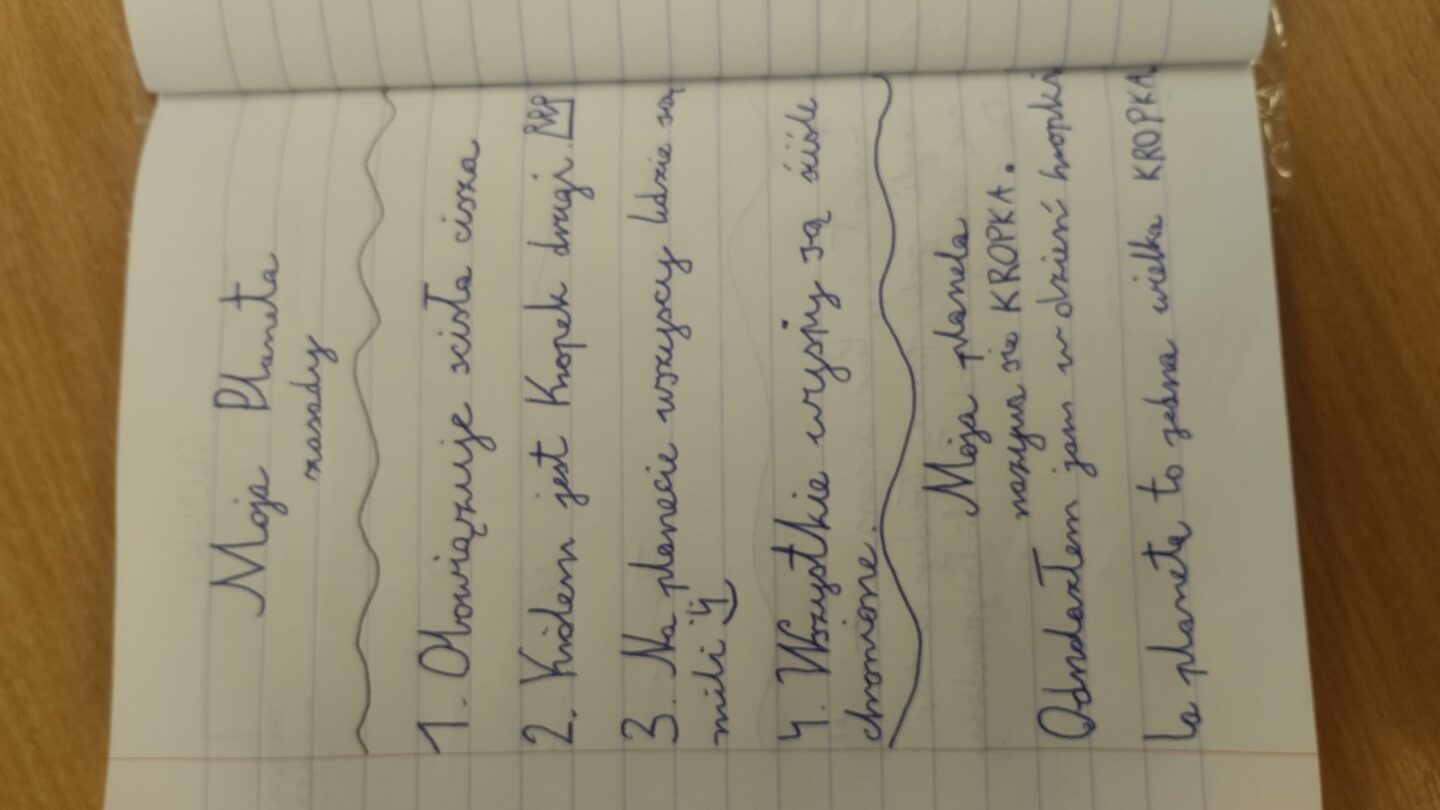 Moja Planeta
zasady
1. Obowiązuje scisła cisza
2. Królem jest Kropek drugi.
3. Na planecie wszyscy ludzie są
mili
4. Wszystkie wyspy są ściśle
chronione.
Moja planeta
nazywa się KROPKA.
Odnalazłem ją w dzień kropki
ta planeta to jedna wielka KROPKA